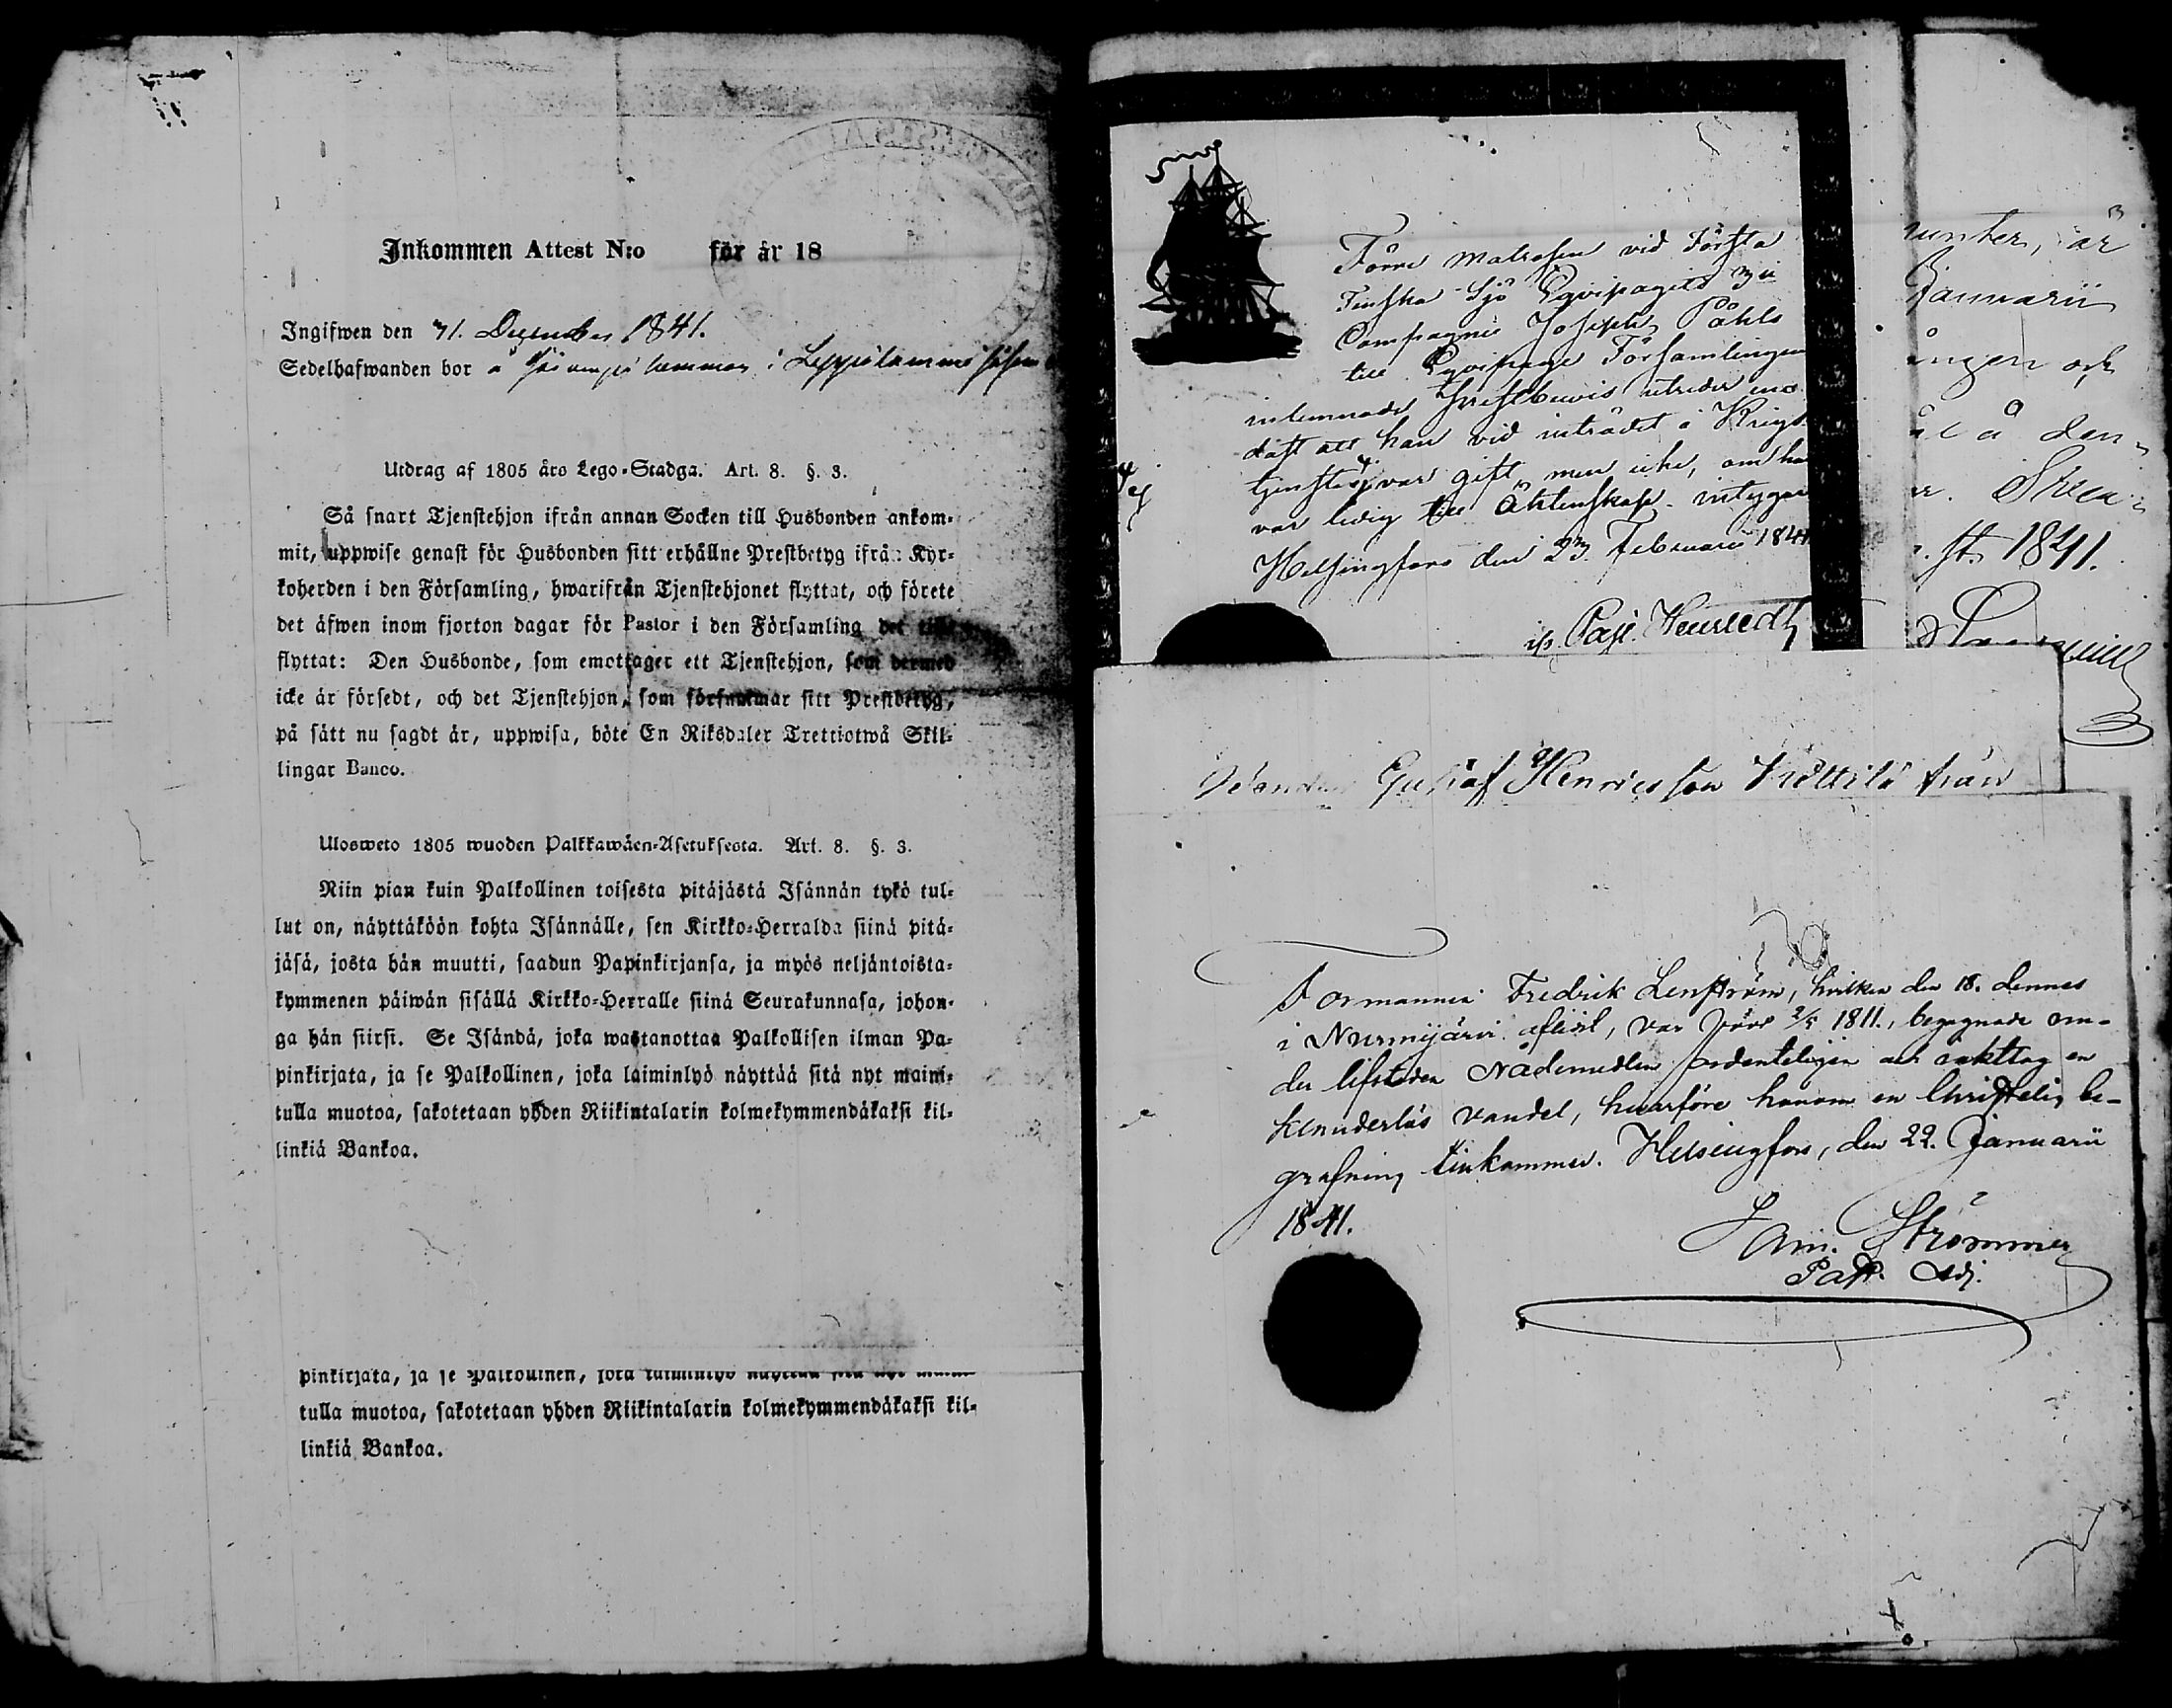 Inkommen Attest N:o för år 18
Ingifwen den 31. December 1841.
Sedelhafwanden bor å hemman i Leppälammi
Utdrag af 1805 års Lego-Stadga. Art. 8. §. 3.
Så snart Tjenstehjon ifrån annan Socken till Husbonden ankom-
mit, uppwise genast för Husbonden sitt erhållne Prestbetyg ifrån Kyr-
koherden i den Församling, hwarifrån Tjenstehjonet flyttat, och förete
det äfwen inom fjorton dagar för Pastor i den Församling det
flyttat: Den Husbonde, som emottager ett Tjenstehjon, som dermed
icke är försedt, och det Tjenstehjon, som försummar sitt Prestbetyg,
på sätt nu sagdt är, uppwisa, böte En Riksdaler Trettiotwå Skil-
lingar Banco.
Ulosweto 1805 wuoden Palkkawäen-Asetuksesta. Art. 8. §. 3.
Niin pian kuin Palkollinen toisesta pitäjästä Isännän tykö tul-
lut on, näyttäköön kohta Isännälle, sen Kirkko-Herralda siinä pitä-
jäsä, josta hän muutti, saadun Papinkirjansa, ja myös neljäntoista-
kymmenen päiwän sisällä Kirkko-Herralle siinä Seurakunnasa, johon-
ga hän siirsi. Se Isändä, joka wastanottaa Palkollisen ilman Pa-
pinkirjata, ja se Palkollinen, joka laiminlyö näyttää sitä nyt maini-
tulla muotoa, sakotetaan yhden Riikintalarin kolmekymmendäkaksi kil-
linkiä Bankoa.
pinkirjata, ja se Palkollinen, joka laiminlyö näyttää sitä nyt maini-
tulla muotoa, sakotetaan yhden Riikintalarin kolmekymmendäkaksi kil-
linkiä Bankoa.
Förre Matrosen vid Första
Finska Sjö Eqvipagets 3ie
Compagnie Joseph Påhls
till Eqvipage Församlingen
inlemnade Frestbevis utreder
att han vid inträdet i Krigs
tjensten var gift men icke, om han
var ledig till Äktenskap intygar
Helsingfors den 23 Februarii 1841
Januarii
ingen och
å den
st. 1841.
Gustaf Henricsson från
Formannen Fredrik Lenström, hvilken den 18. dennes
i Nurmijärvi aflidit, var född 2/5 1811., begagnade om-
der lifstiden Nådemedlen ordenteligen och iakttog en
klanderlös vandel, hvarföre honom en Christelig be-
grafning tillkommer. Helsingfors, den 22. Januarii
1841.
Strömmer
Past. Adj.